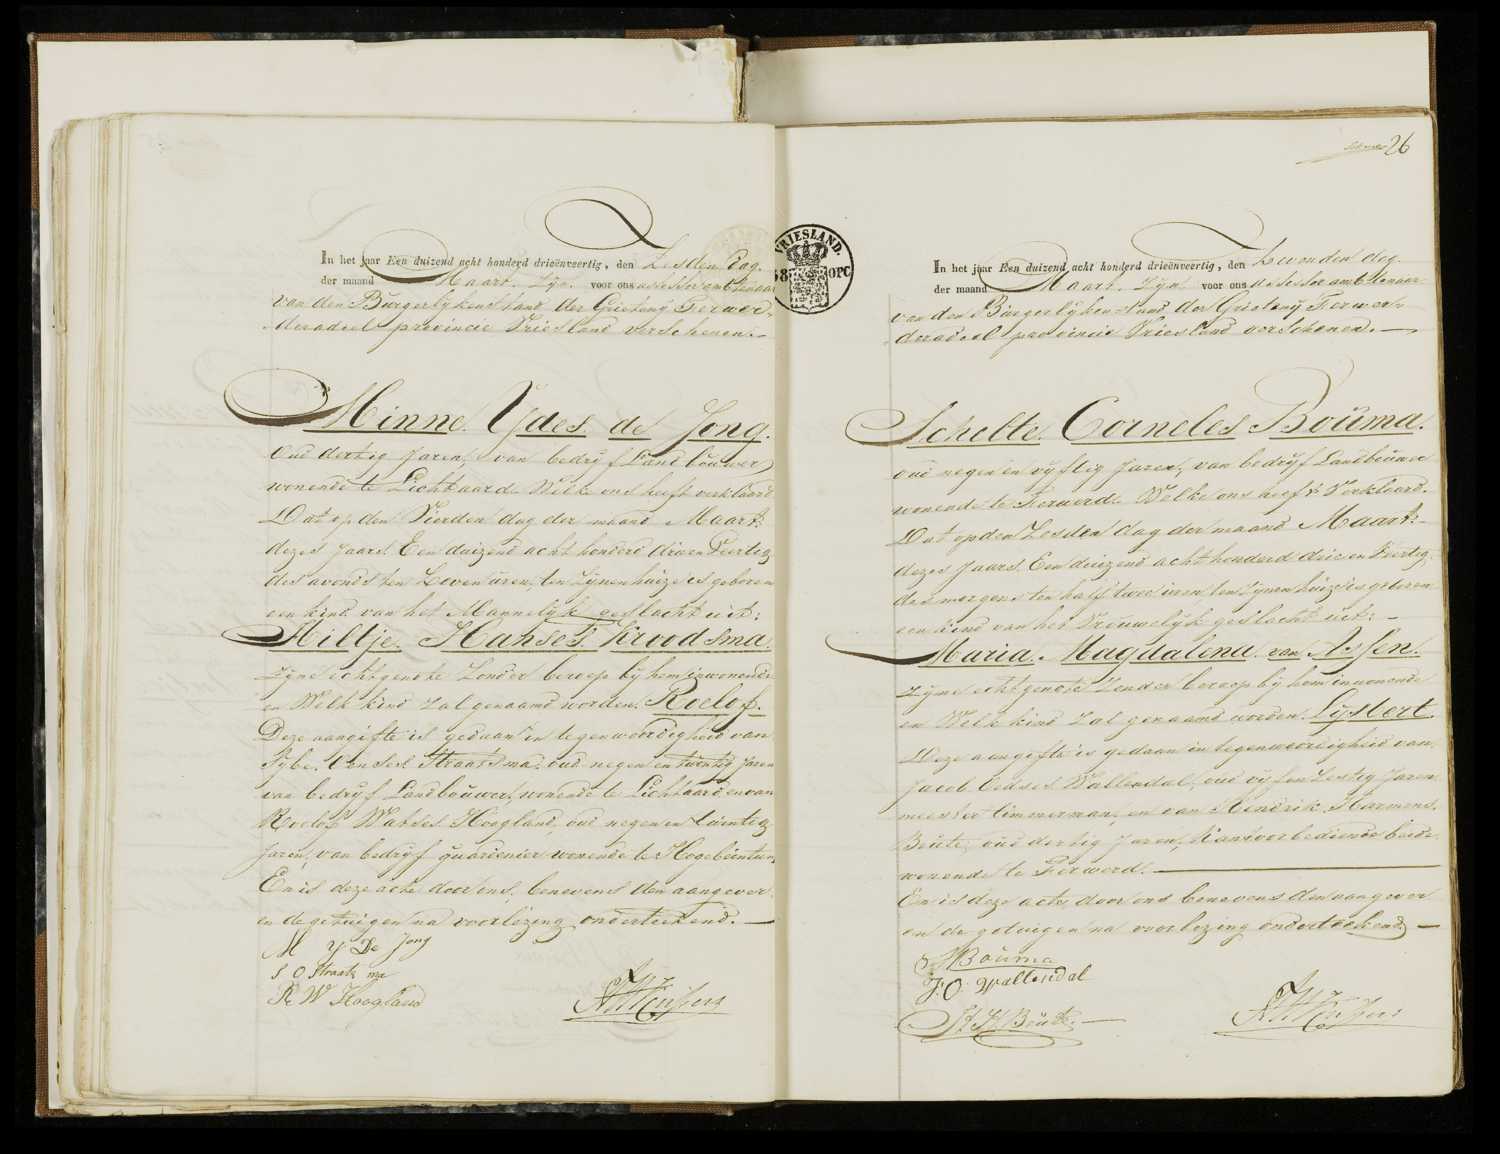 In het jaar Een duizend acht honderd drieënveertig, den Zesden dag.
der maand Maart. Zyn. voor ons assessor ambtenaar
van den Burgerlyken stand der Grieteny Ferwer-
deradeel provincie Vriesland verschenen.
Minne. Ydes. de Jong.
Oud dertig Jaren, van bedryf Landbouwer
wonende te Lichtaard. Welke ons heeft verklaard
Dat op den Vierden dag der maand Maart.
dezes Jaars Een duizend acht honderd drie en Veertig
des avonds ten Zeven uren, ten Zynen huize is geboren
een kind van het Mannelyk geslacht uit:
Hiltje. Hanses. Kroodsma.
Zyne echtgenote Zonder beroep by hem inwonende
en Welk kind Zal genaamd worden. Roelof.
Deze aangifte is gedaan in tegenwoordigheid van
Straatsma. oud negen en twintig Jaren
van bedryf Landbouwer, wonende te Lichtaard en van
Roelof Wanses Hoogland, oud negen en twintig
Jaren, van bedryf wonende te Hogebeintum
En is deze acte door ons, benevens den aangever
en de getuigen na voorlezing onderteekend.
M Y De Jong
S O Straatsma
R W Hoogland
VRIESLAND.
OPC
26
In het jaar Een duizend acht honderd drieënveertig, den Zevenden dag
der maand Maart. Zyn voor ons assessor ambtenaar
van den Burgerlyken stand der Grieteny Ferwer-
deradeel provincie Vriesland verschenen.
Schelte. Corneles Bouma.
oud negen en vyftig Jaren, van bedryf Landbouwer
wonende te Ferwerd. Welke ons heeft Verklaard.
Dat op den Zesden dag der maand Maart.
dezes Jaars Een duizend acht honderd drie en Veertig
des morgens ten half twee uren ten Zynen huize is geboren
een kind van het Vrouwelyk geslacht uit:
Maria. Magdalena van Assen.
Zyne echtgenote Zonder beroep by hem inwonende
en Welk kind Zal genaamd worden. Lysbert
Deze aangifte is gedaan in tegenwoordigheid van
Jacob Wallendal, oud vyf en Zestig Jaren
meester timmerman, en van Hendrik Harmens.
Beute, oud dertig Jaren, Kantoorbediende beide
wonende te Ferwerd.
En is deze acte, door ons benevens den aangever
en de getuigen na voorlezing onderteekend
S Bouma
J. O. Wallendal
H H Beute.